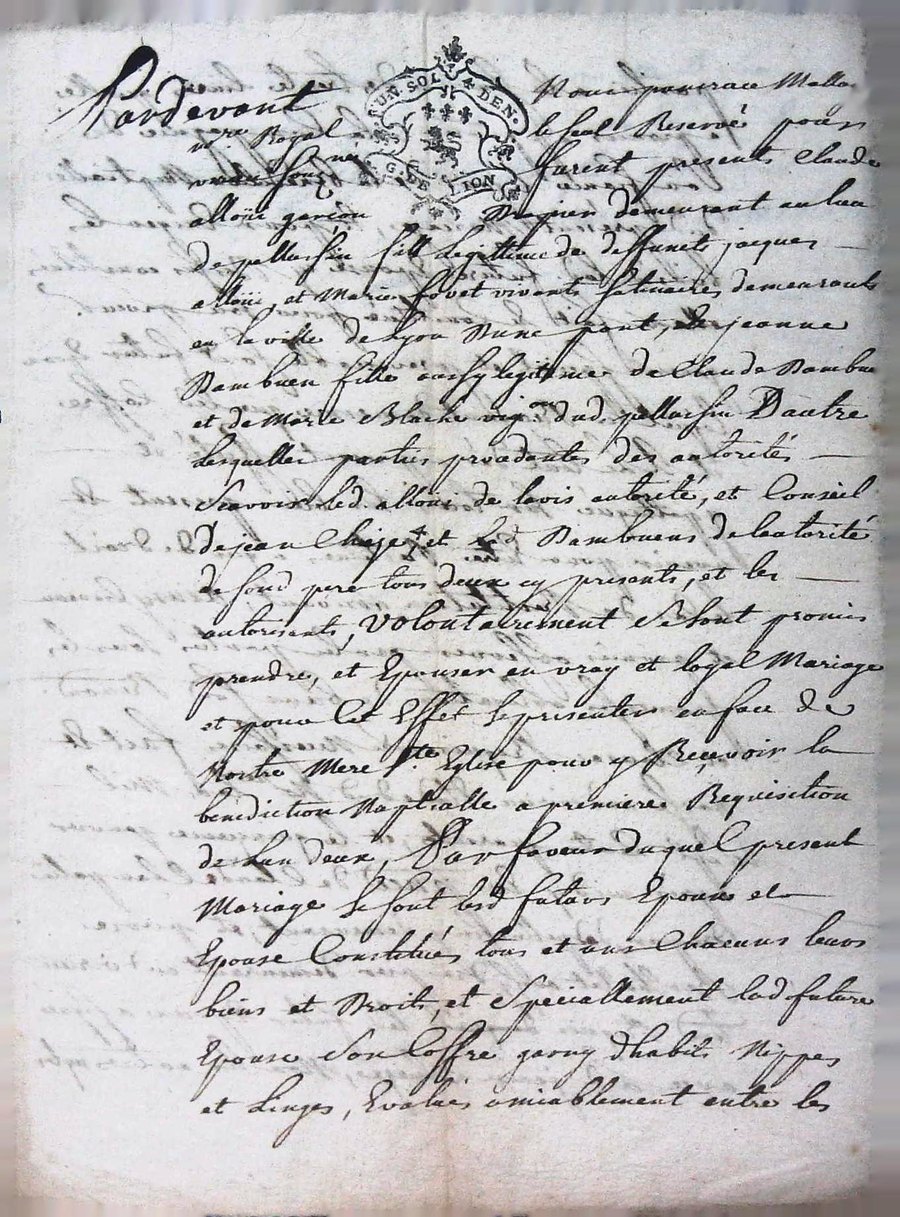 Pardevant Nous pancrace Mallas
nre. Royal le seel Reservé pour
furent presents Claude
alloüe garçon Drapier demeurant au lieu
de pellussin fils legittime de deffunct jacques
alloüe, et Marie fovet vivants satinaires demeurants
en la ville de Lyon D'une part, et jeanne
Dambuen fille aussy legitime de Claude Dambuen
et de Marie Blache vig.on dud. pellussin D'autre
Lesquelles parties procedantes des autorités
Scavoir led. alloüe de lavis autorité, et Conseil
De jean et lad. Dambuens de lautorité
de sond. pere tous deux cy presents, et les
autorisants, volontairement se sont promis
prendre, et Epouser en vray et loyal Mariage
et pour Cet Effet se presenter en face de
Nostre Mere Ste. Eglise pour y Recevoir la
benediction Nuptialle a premiere Requisition
de Lun deux, En faveur duquel present
Mariage se sont lesd. futurs Epoux et
Epouse Constitués tous et uns Chacuns leurs
biens et Droits, et Speciallement lad. future
Epouse Son Coffre garny d'habits Nippes
et Linges, Evalués amiablement entre les
GEN. DE LION